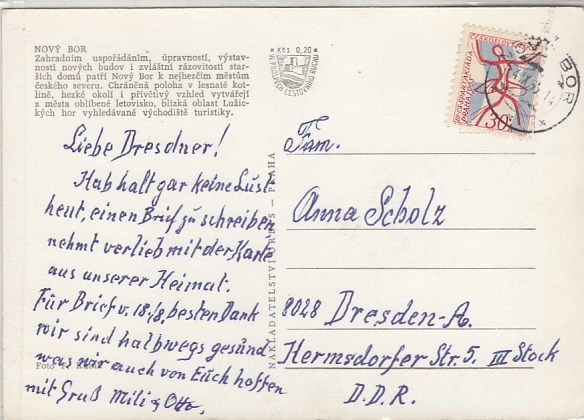 NOVÝ BOR
Zahradním uspořádáním, úpravností, výstav-
ností nových budov i zvláštní rázovitostí star-
ších domů patří Nový Bor k nejhezčím městům
českého severu. Chráněná poloha v lesnaté kot-
lině, hezké okolí i přívětivý vzhled vytvářejí
z města oblíbené letovisko, blízká oblast Lužic-
kých hor vyhledávané východiště turistiky.
Kčs 0,20
Liebe Dresdner!
Hab halt gar keine Lust
heut, einen Brief zu schreiben
nehmt verlieb mit der Karte
aus unserer Heimat.
Für Brief v. 18./8. besten Dank
wir sind halbwegs gesund
was wir auch von Euch hoffen
mit Gruß Mili & Otto.
Foto
NAKLADATELSTVÍ ORBIS – PRAHA
ČESKOSLOVENSKO
SPARTAKIÁDA
PRAHA 1965
30
BOR
Fam.
Anna Scholz
8028 Dresden-A.
Hermsdorfer Str. 5. III Stock
D.D.R.